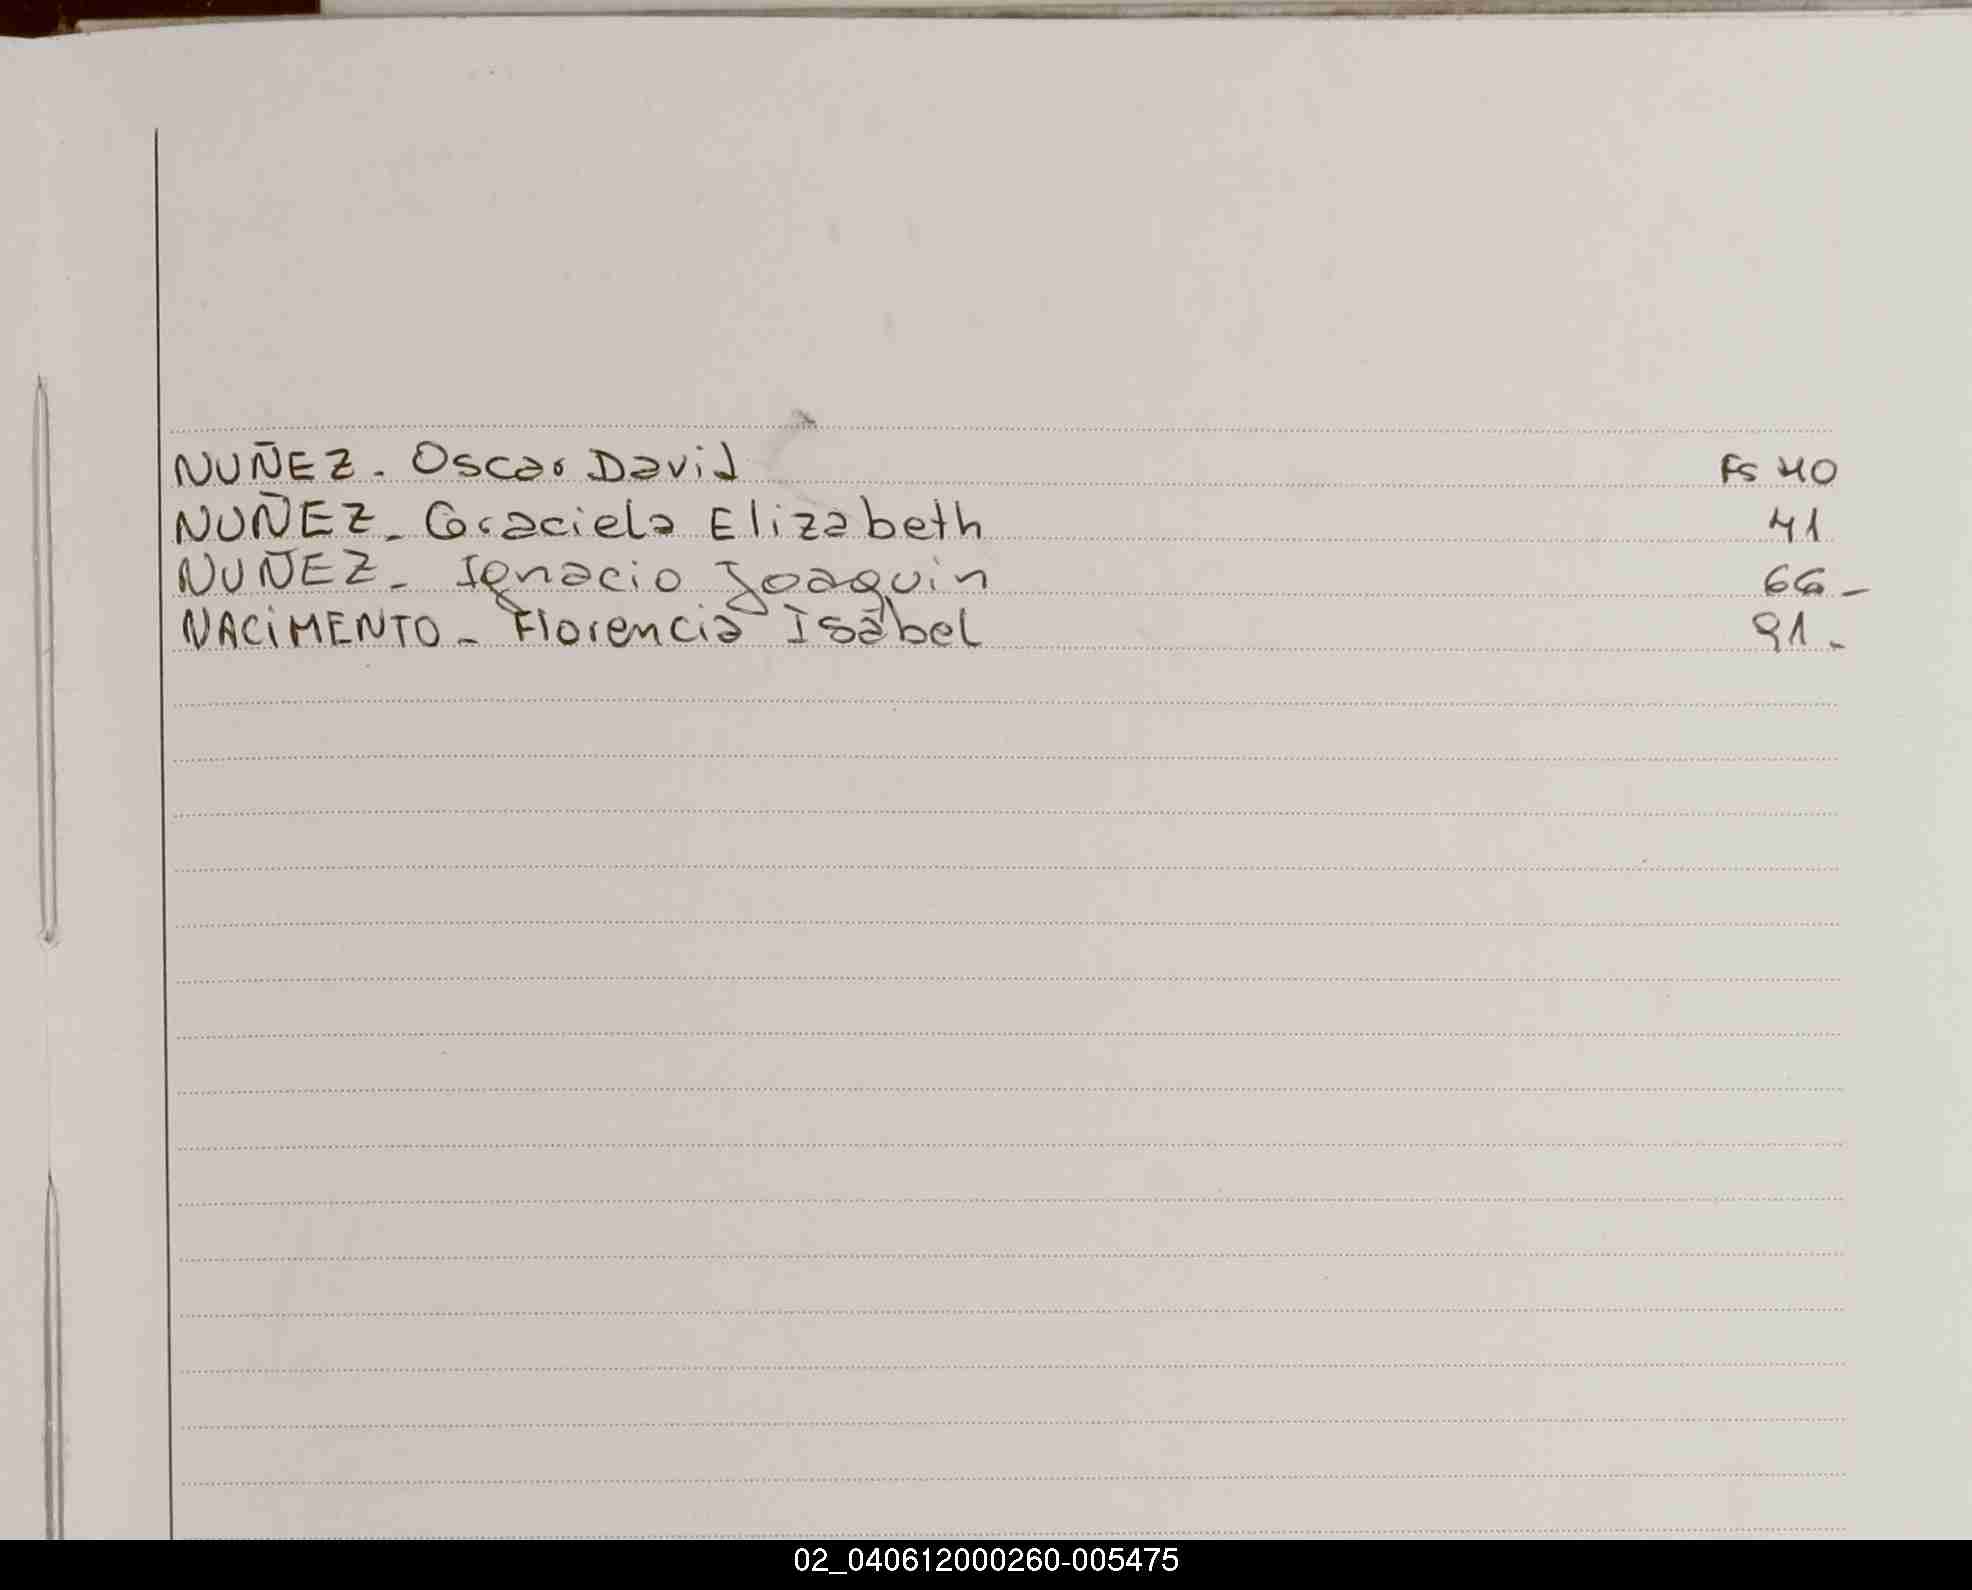 NUÑEZ - Oscar David Fs 40
NUÑEZ - Graciela Elizabeth 41
NUÑEZ - Ignacio Joaquin 66 -
NACIMENTO - Florencia Isabel 91 -
02_040612000260-005475